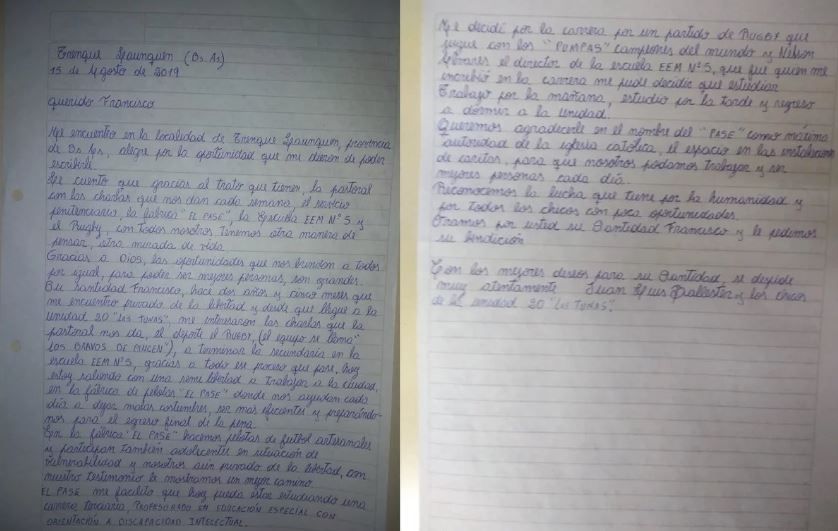 Trenque Lauquen (Bs. As)
15 de Agosto de 2019
querido Francisco
Me encuentro en la localidad de Trenque Lauquen, provincia
de Bs. As, alegre por la oportunidad que me dieron de poder
escribirle.
Le cuento que gracias al trato que tienen, la pastoral
con las charlas que nos dan cada semana, el servicio
penitenciario, la fabrica "EL PASE", la Escuela EEM Nº5 y
el Rugby, con todos nosotros tenemos otra manera de
pensar, otra mirada de vida.
Gracias a Dios, las oportunidades que nos brindan a todos
por igual, para poder ser mejores personas, son grandes.
Su santidad Francisco, hace dos años y cinco meses que
me encuentro privado de la libertad y desde que llegue a la
unidad 20 "LAS TUNAS", me interesaron las charlas que la
pastoral nos da, el deporte el RUGBY, (el equipo se llama "
LOS BRAVOS DE PINCEN"), a terminar la secundaria en la
escuela EEM Nº5, gracias a todo ese proceso que pase, hoy
estoy saliendo con una semi libertad a trabajar a la ciudad,
en la fábrica de pelotas "EL PASE" donde nos ayudan cada
día a dejar malas costumbres, ser mas eficientes y preparándo-
nos para el egreso final de la pena.
En la fábrica "EL PASE" hacemos pelotas de futbol artesanales
y participan también adolecentes en situación de
vulnerabilidad y nosotros aun privado de la libertad, con
nuestro testimonio le mostramos un mejor camino.
EL PASE me facilito que hoy pueda estar estudiando una
carrera terciaria, PROFESORADO EN EDUCACIÓN ESPECIAL CON
ORIENTACIÓN A DISCAPACIDAD INTELECTUAL.
Me decidí por la carrera por un partido de RUGBY que
jugue con los "PUMPAS" campeones del mundo y Nelson
el director de la escuela EEM Nº5, que fue quien me
inscribió en la carrera me pude decidir que estudiar
Trabajo por la mañana, estudio por la tarde y regreso
a dormir a la unidad.
Queremos agradecerle en el nombre del "PASE" como máxima
autoridad de la iglesia católica, el espacio en las
de caritas, para que nosotros podamos trabajar y ser
mejores personas cada día.
Reconocemos la lucha que tiene por la humanidad y
por todos los chicos con poca oportunidades.
Oramos por usted su Santidad Francisco y le pedimos
su bendición
Con los mejores deseos para su Santidad, se despide
muy atentamente Juan Luis Ballester y los chicos
de la unidad 20 "LAS TUNAS".